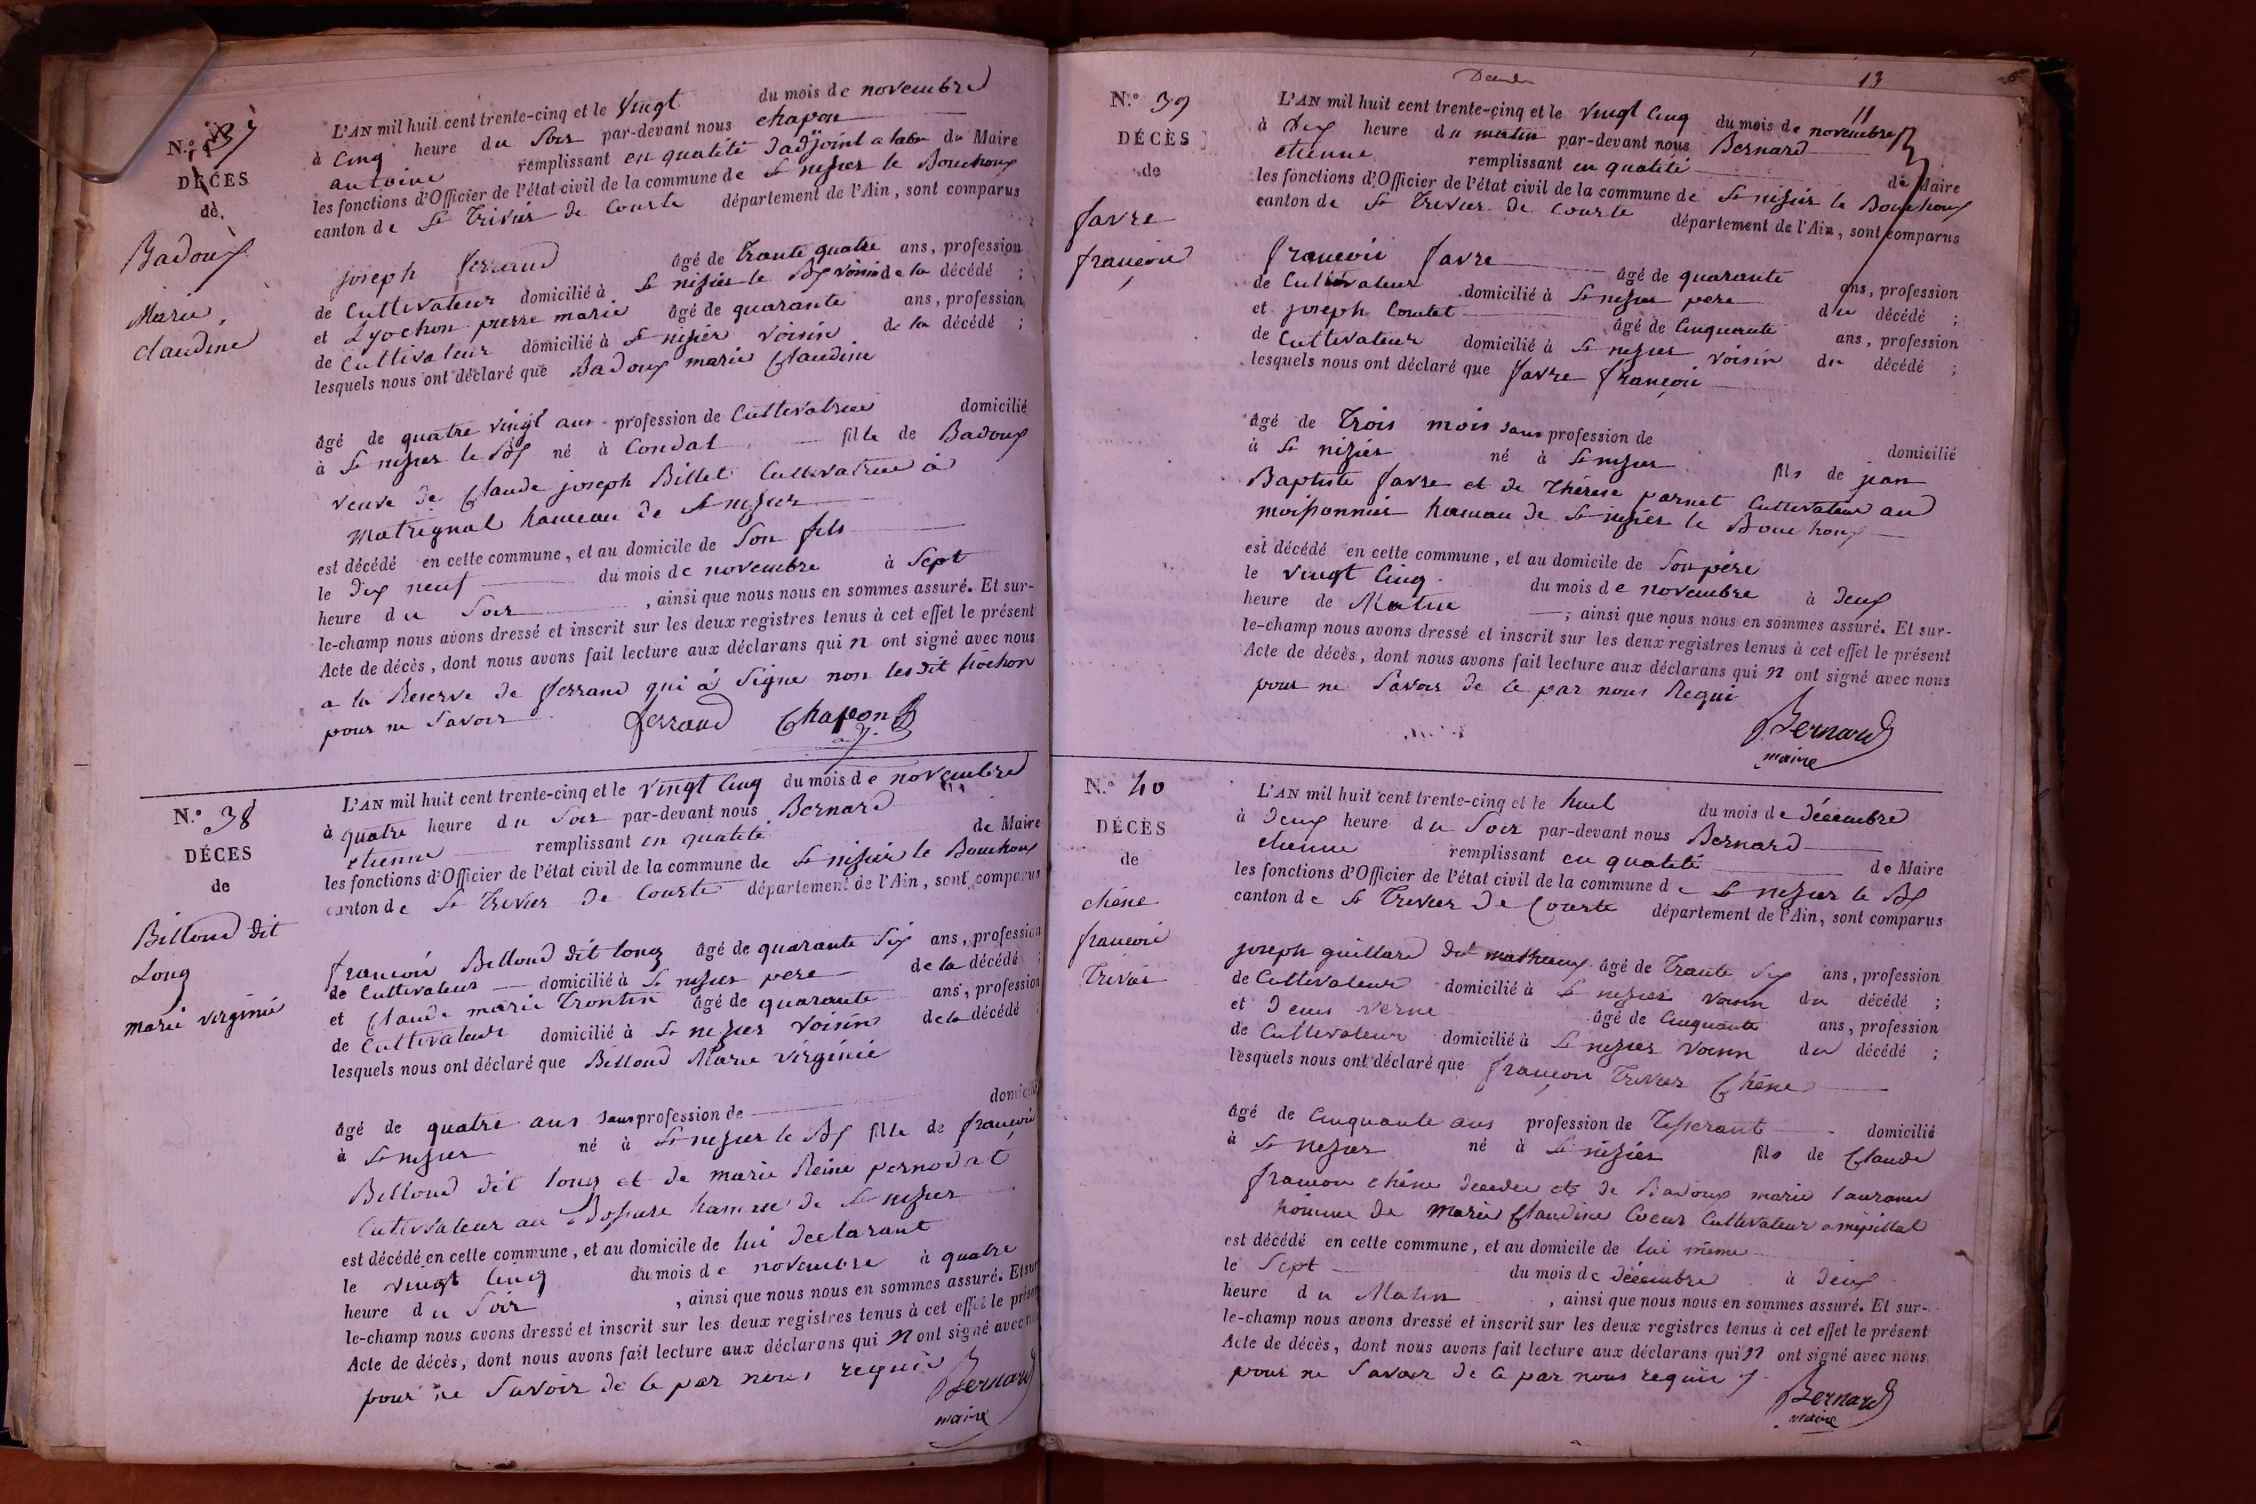 N.º 37
DÉCÈS
de
Badoux
Marie
claudine
L'AN mil huit cent trente-cinq et le vingt du mois de novembre
à cinq heure du soir par-devant nous chapon
antoine remplissant en qualité d'adjoint a du Maire
les fonctions d'Officier de l'état civil de la commune de St nizier le Bouchoux
canton de St Trivier de Courte département de l'Ain, sont comparus
joseph ferrand âgé de trante quatre ans, profession
de Cultivateur domicilié à St nizier le Bx voisin de la décédé ;
et Lyochon pierre marie âgé de quarante ans, profession
de Cultivateur domicilié à St nizier voisin de la décédé ;
lesquels nous ont déclaré que Badoux marie Claudine
âgé de quatre vingt ans profession de Cultivatrice domicilié
à St nizier le Bx né à Condal fille de Badoux
veuve de Claude joseph Billet Cultivatrice à
Matrignat hameau de St nizier
est décédé en cette commune, et au domicile de Son fils
le dix neuf du mois de novembre à Sept
heure du Soir , ainsi que nous nous en sommes assuré. Et sur-
le-champ nous avons dressé et inscrit sur les deux registres tenus à cet effet le présent
Acte de décès, dont nous avons fait lecture aux déclarans qui n ont signé avec nous
a la Reserve de ferrand qui à Signe non les dit
pour ne Savoir
ferrand Chapon
adj.
N.º 38
DÉCES
de
Billoud dit
Long
marie virginie
L'AN mil huit cent trente-cinq et le vingt cinq du mois de novembre
à quatre heure du Soir par-devant nous Bernard
etienne remplissant en qualité de Maire
les fonctions d'Officier de l'état civil de la commune de St nizier le Bouchoux
canton de St Trivier de Courte département de l'Ain, sont comparus
francois Billoud dit long âgé de quarante Six ans, profession
de Cultivateur domicilié à St nizier pere de la décédé
et Claude marie Trontin âgé de quarante ans, profession
de Cultivateur domicilié à St nizier voisin de la décédé
lesquels nous ont déclaré que Billoud Marie virginie
âgé de quatre ans sans profession de domicilié
à St nizier né à St nizier le Bx fille de françois
Billoud dit long et de marie Reine pernodat
Cultivateur au hameau de St nizier
est décédé en cette commune, et au domicile de lui declarant
le vingt cinq du mois de novembre à quatre
heure du Soir , ainsi que nous nous en sommes assuré. Et sur
le-champ nous avons dressé et inscrit sur les deux registres tenus à cet effet le présent
Acte de décès, dont nous avons fait lecture aux déclarans qui n ont signé avec nous
pour ne Savoir de ce par nous requis
Bernard
maire
13
N.º 39
DÉCÈS
de
favre
françois
L'AN mil huit cent trente-cinq et le vingt cinq du mois de novembre
11
à dix heure du matin par-devant nous Bernard
etienne remplissant en qualité de Maire
les fonctions d'Officier de l'état civil de la commune de St nizier le Bouchoux
canton de St Trivier de Courte département de l'Ain, sont comparus
francois favre âgé de quarante ans, profession
de Cultivateur domicilié à St nizier pere du décédé ;
et joseph Coulet âgé de Cinquante ans, profession
de Cultivateur domicilié à St nizier voisin du décédé ;
lesquels nous ont déclaré que favre françois
âgé de Trois mois sans profession de domicilié
à St nizier né à St nizier fils de jean
Baptiste favre et de Thérèse parnet Cultivateur au
moissonnier hameau de St nizier le Bouchoux
est décédé en cette commune, et au domicile de Son père
le vingt Cinq du mois de novembre à deux
heure de Matin ; ainsi que nous nous en sommes assuré. Et sur-
le-champ nous avons dressé et inscrit sur les deux registres tenus à cet effet le présent
Acte de décès, dont nous avons fait lecture aux déclarans qui n ont signé avec nous
pour ne Savoir de ce par nous Requi
Bernard
maire
N.º 40
DÉCÈS
de
chêne
françois
Trivier
L'AN mil huit cent trente-cinq et le huit du mois de décembre
à deux heure du Soir par-devant nous Bernard
etienne remplissant en qualité de Maire
les fonctions d'Officier de l'état civil de la commune de St nizier le Bx
canton de St Trivier de Courte département de l'Ain, sont comparus
joseph guillard dit mathieux âgé de Trante Six ans, profession
de Cultivateur domicilié à St nizier voisin du décédé ;
et Denis verne âgé de Cinquante ans, profession
de Cultivateur domicilié à St nizier voisin du décédé ;
lesquels nous ont déclaré que françois Trivier Chêne
âgé de Cinquante ans profession de Tisserant domicilié
à St nizier né à St nizier fils de Claude
francois chêne decedee et de Badoux marie
homme de Marie Claudine Coeur Cultivateur a
est décédé en cette commune, et au domicile de lui même
le Sept du mois de décembre à deux
heure du Matin , ainsi que nous nous en sommes assuré. Et sur-
le-champ nous avons dressé et inscrit sur les deux registres tenus à cet effet le présent
Acte de décès, dont nous avons fait lecture aux déclarans qui n ont signé avec nous
pour ne Savoir de ce par nous requis
Bernard
maire